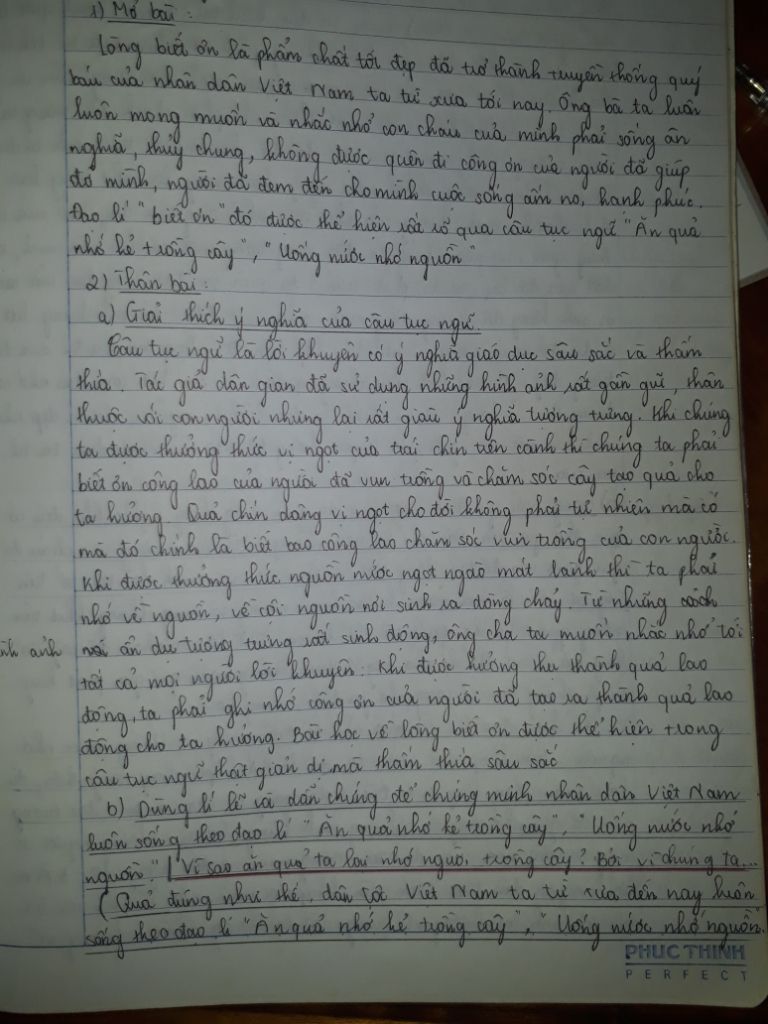 1) Mở bài:
Lòng biết ơn là phẩm chất tốt đẹp đã trở thành truyền thống quý
báu của nhân dân Việt Nam ta từ xưa tới nay. Ông bà ta luôn
luôn mong muốn và nhắc nhở con cháu của mình phải sống ân
nghĩa, thủy chung, không được quên đi công ơn của người đã giúp
đỡ mình, người đã đem đến cho mình cuộc sống ấm no, hạnh phúc.
Đạo lí "biết ơn" đó được thể hiện rất rõ qua câu tục ngữ "Ăn quả
nhớ kẻ trồng cây", "Uống nước nhớ nguồn"
2) Thân bài:
a) Giải thích ý nghĩa của câu tục ngữ.
Câu tục ngữ là lời khuyên có ý nghĩa giáo dục sâu sắc và thấm
thía. Tác giả dân gian đã sử dụng những hình ảnh rất gần gũi, thân
thuộc với con người nhưng lại rất giàu ý nghĩa tượng trưng. Khi chúng
ta được thưởng thức vị ngọt của trái chín trên cành thì chúng ta phải
biết ơn công lao của người đã vun trồng và chăm sóc cây tạo quả cho
ta hưởng. Quả chín dâng vị ngọt cho đời không phải tự nhiên mà có
mà đó chính là biết bao công lao chăm sóc vun trồng của con người.
Khi được thưởng thức nguồn nước ngọt ngào mát lành thì ta phải
nhớ về nguồn, về cội nguồn nơi sinh ra dòng chảy. Từ những
nh ảnh ẩn dụ tượng trưng rất sinh động, ông cha ta muốn nhắc nhở tới
tất cả mọi người lời khuyên: Khi được hưởng thụ thành quả lao
động, ta phải ghi nhớ công ơn của người đã tạo ra thành quả lao
động cho ta hưởng. Bài học về lòng biết ơn được thể hiện trong
câu tục ngữ thật giản dị mà thấm thía sâu sắc
b) Dùng lí lẽ và dẫn chứng để chứng minh nhân dân Việt Nam
luôn sống theo đạo lí "Ăn quả nhớ kẻ trồng cây", "Uống nước nhớ
nguồn." / Vì sao ăn quả ta lại nhớ người trồng cây? Bởi vì chúng ta...
(Quả đúng như thế, dân tộc Việt Nam ta từ xưa đến nay luôn
sống theo đạo lí "Ăn quả nhớ kẻ trồng cây", "Uống nước nhớ nguồn.
PHUC THINH
PERFECT